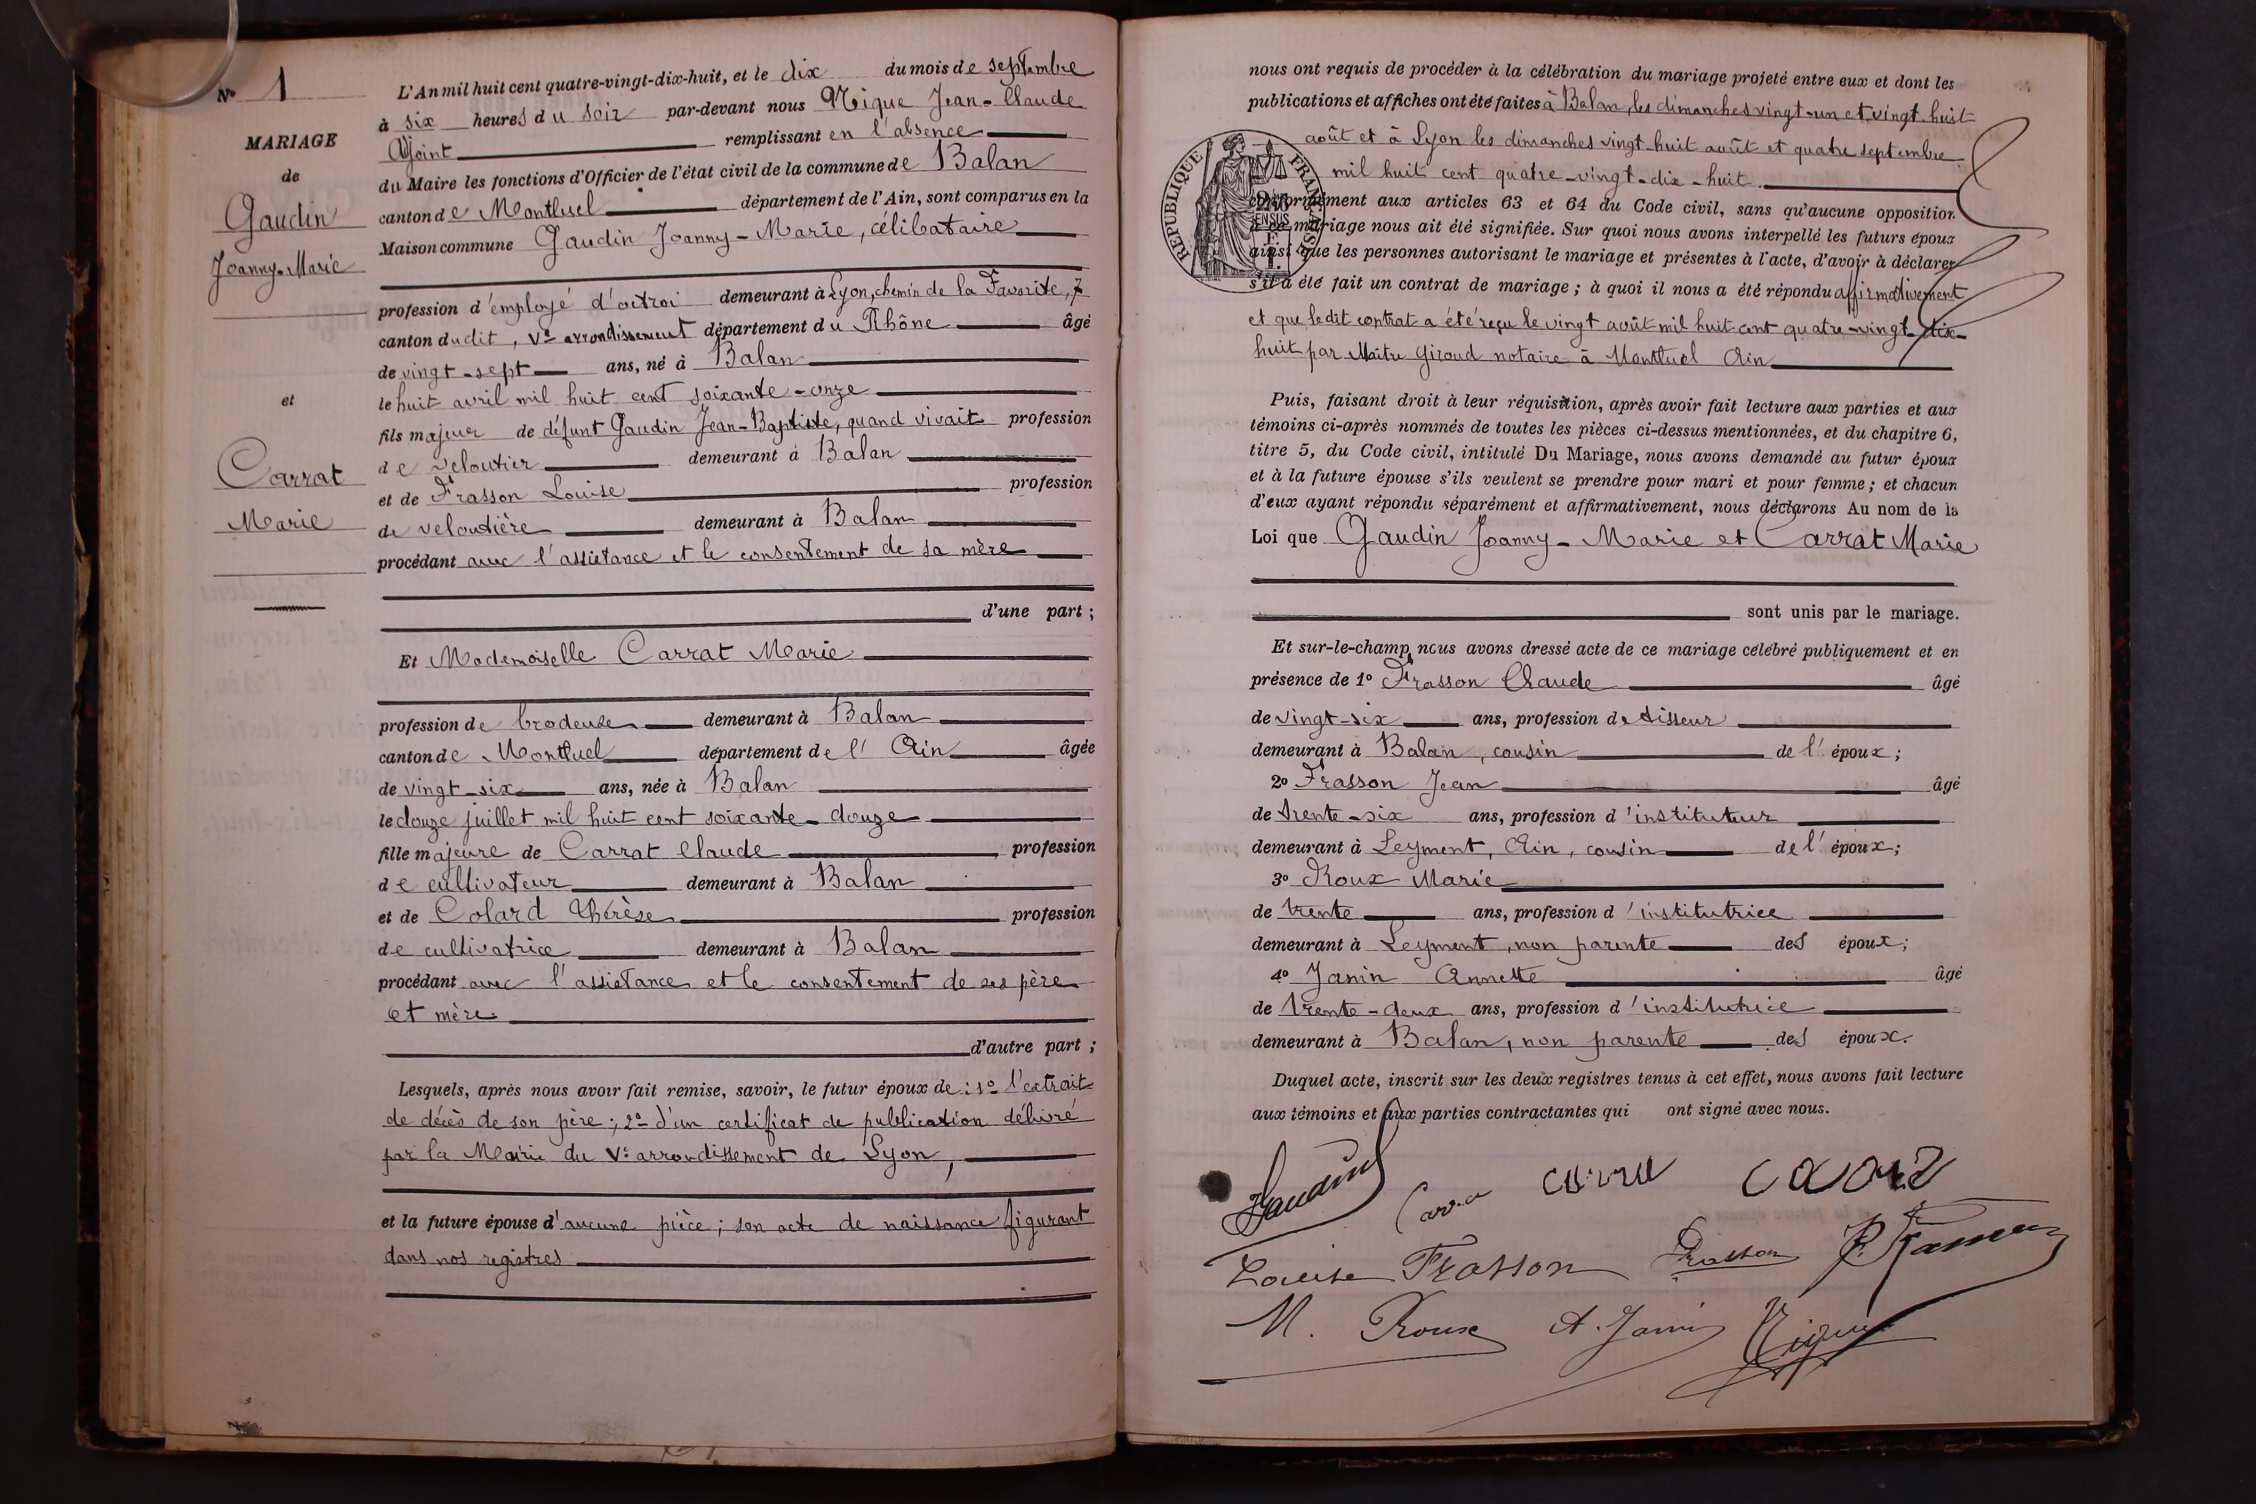 N° 1
MARIAGE
de
Gaudin
Joanny-Marie
et
Carrat
Marie
L'An mil huit cent quatre-vingt-dix-huit, et le dix du mois de septembre
à six heures du soir par-devant nous Nique Jean-Claude
Adjoint remplissant en l'absence
du Maire les fonctions d'Officier de l'état civil de la commune de Balan
canton de Montluel département de l'Ain, sont comparus en la
Maison commune Gaudin Joanny-Marie, célibataire
profession d'employé d'octroi demeurant à Lyon, chemin de la Favorite, 7
canton dudit, Ve arrondissement département du Rhône âgé
de vingt-sept ans, né à Balan
le huit avril mil huit cent soixante-onze
fils majeur de défunt Gaudin Jean-Baptiste, quand vivait profession
de veloutier demeurant à Balan
et de Frasson Louise profession
de veloutière demeurant à Balan
procédant avec l'assistance et le consentement de sa mère
d'une part ;
Et Mademoiselle Carrat Marie
profession de brodeuse demeurant à Balan
canton de Montluel département de l'Ain âgée
de vingt-six ans, née à Balan
le douze juillet mil huit cent soixante-douze
fille majeure de Carrat Claude profession
de cultivateur demeurant à Balan
et de Colard Thérèse profession
de cultivatrice demeurant à Balan
procédant avec l'assistance et le consentement de ses père
et mère
d'autre part ;
Lesquels, après nous avoir fait remise, savoir, le futur époux de : 1° l'extrait
de décès de son père ; 2° d'un certificat de publication délivré
par la Mairie du Ve arrondissement de Lyon,
et la future épouse d'aucune pièce ; son acte de naissance figurant
dans nos registres
nous ont requis de procéder à la célébration du mariage projeté entre eux et dont les
publications et affiches ont été faites à Balan, les dimanches vingt-un et vingt-huit
août et à Lyon les dimanches vingt-huit août et quatre septembre
mil huit cent quatre-vingt-dix-huit.
REPUBLIQUE FRANÇAISE
conformément aux articles 63 et 64 du Code civil, sans qu'aucune opposition
à ce mariage nous ait été signifiée. Sur quoi nous avons interpellé les futurs époux
ainsi que les personnes autorisant le mariage et présentes à l'acte, d'avoir à déclarer
s'il a été fait un contrat de mariage ; à quoi il nous a été répondu affirmativement
et que ledit contrat a été reçu le vingt août mil huit cent quatre-vingt-dix-
huit par Maître Giroud notaire à Montluel Ain
Puis, faisant droit à leur réquisition, après avoir fait lecture aux parties et aux
témoins ci-après nommés de toutes les pièces ci-dessus mentionnées, et du chapitre 6,
titre 5, du Code civil, intitulé Du Mariage, nous avons demandé au futur époux
et à la future épouse s'ils veulent se prendre pour mari et pour femme ; et chacun
d'eux ayant répondu séparément et affirmativement, nous déclarons Au nom de la
Loi que Gaudin Joanny-Marie et Carrat Marie
sont unis par le mariage.
Et sur-le-champ nous avons dressé acte de ce mariage célébré publiquement et en
présence de 1° Frasson Claude âgé
de vingt-six ans, profession de tisseur
demeurant à Balan, cousin de l'époux ;
2° Frasson Jean âgé
de trente-six ans, profession d'instituteur
demeurant à Leyment, Ain, cousin de l'époux ;
3° Roux Marie
de trente ans, profession d'institutrice
demeurant à Leyment, non parente des époux ;
4° Janin Annette âgé
de trente-deux ans, profession d'institutrice
demeurant à Balan, non parente des époux.
Duquel acte, inscrit sur les deux registres tenus à cet effet, nous avons fait lecture
aux témoins et aux parties contractantes qui ont signé avec nous.
Gaudin
Louise Frasson Frasson
M. Roux A. Janin Nique